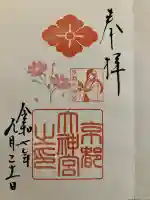 奉拝
京都
大神宮
之印
令和七年
九月二十一日